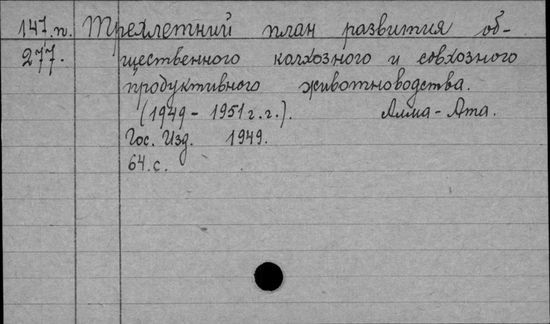 147.п. Трехлетний план развития об-
277. щественного колхозного и совхозного
продуктивного животноводства.
(1949-1951 г.г.). Алма-Ата.
Гос. Изд. 1949.
64.с.